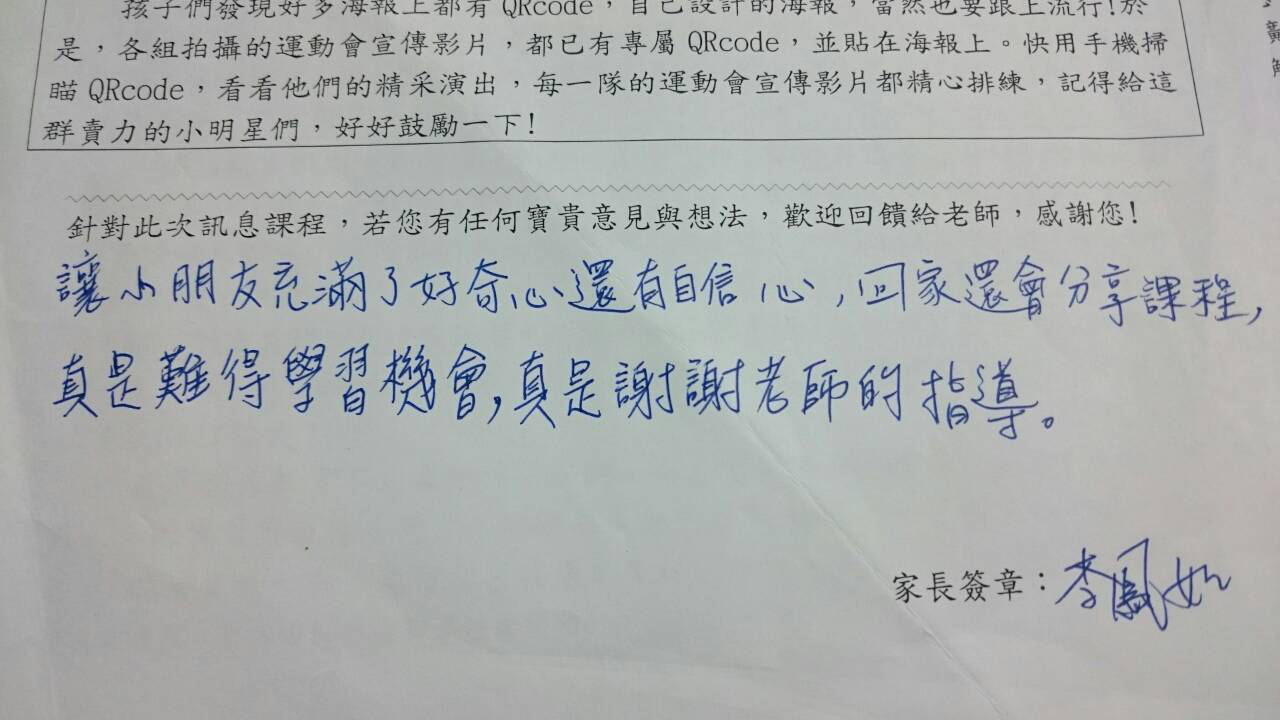 孩子們發現好多海報上都有 QRcode，自己設計的海報，當然也要跟上流行!於
是，各組拍攝的運動會宣傳影片，都已有專屬 QRcode，並貼在海報上。快用手機掃
瞄 QRcode，看看他們的精采演出，每一隊的運動會宣傳影片都精心排練，記得給這
群賣力的小明星們，好好鼓勵一下!
針對此次訊息課程，若您有任何寶貴意見與想法，歡迎回饋給老師，感謝您!
讓小朋友充滿了好奇心還有自信心，回家還會分享課程，
真是難得學習機會，真是謝謝老師的指導。
家長簽章：李鳳如